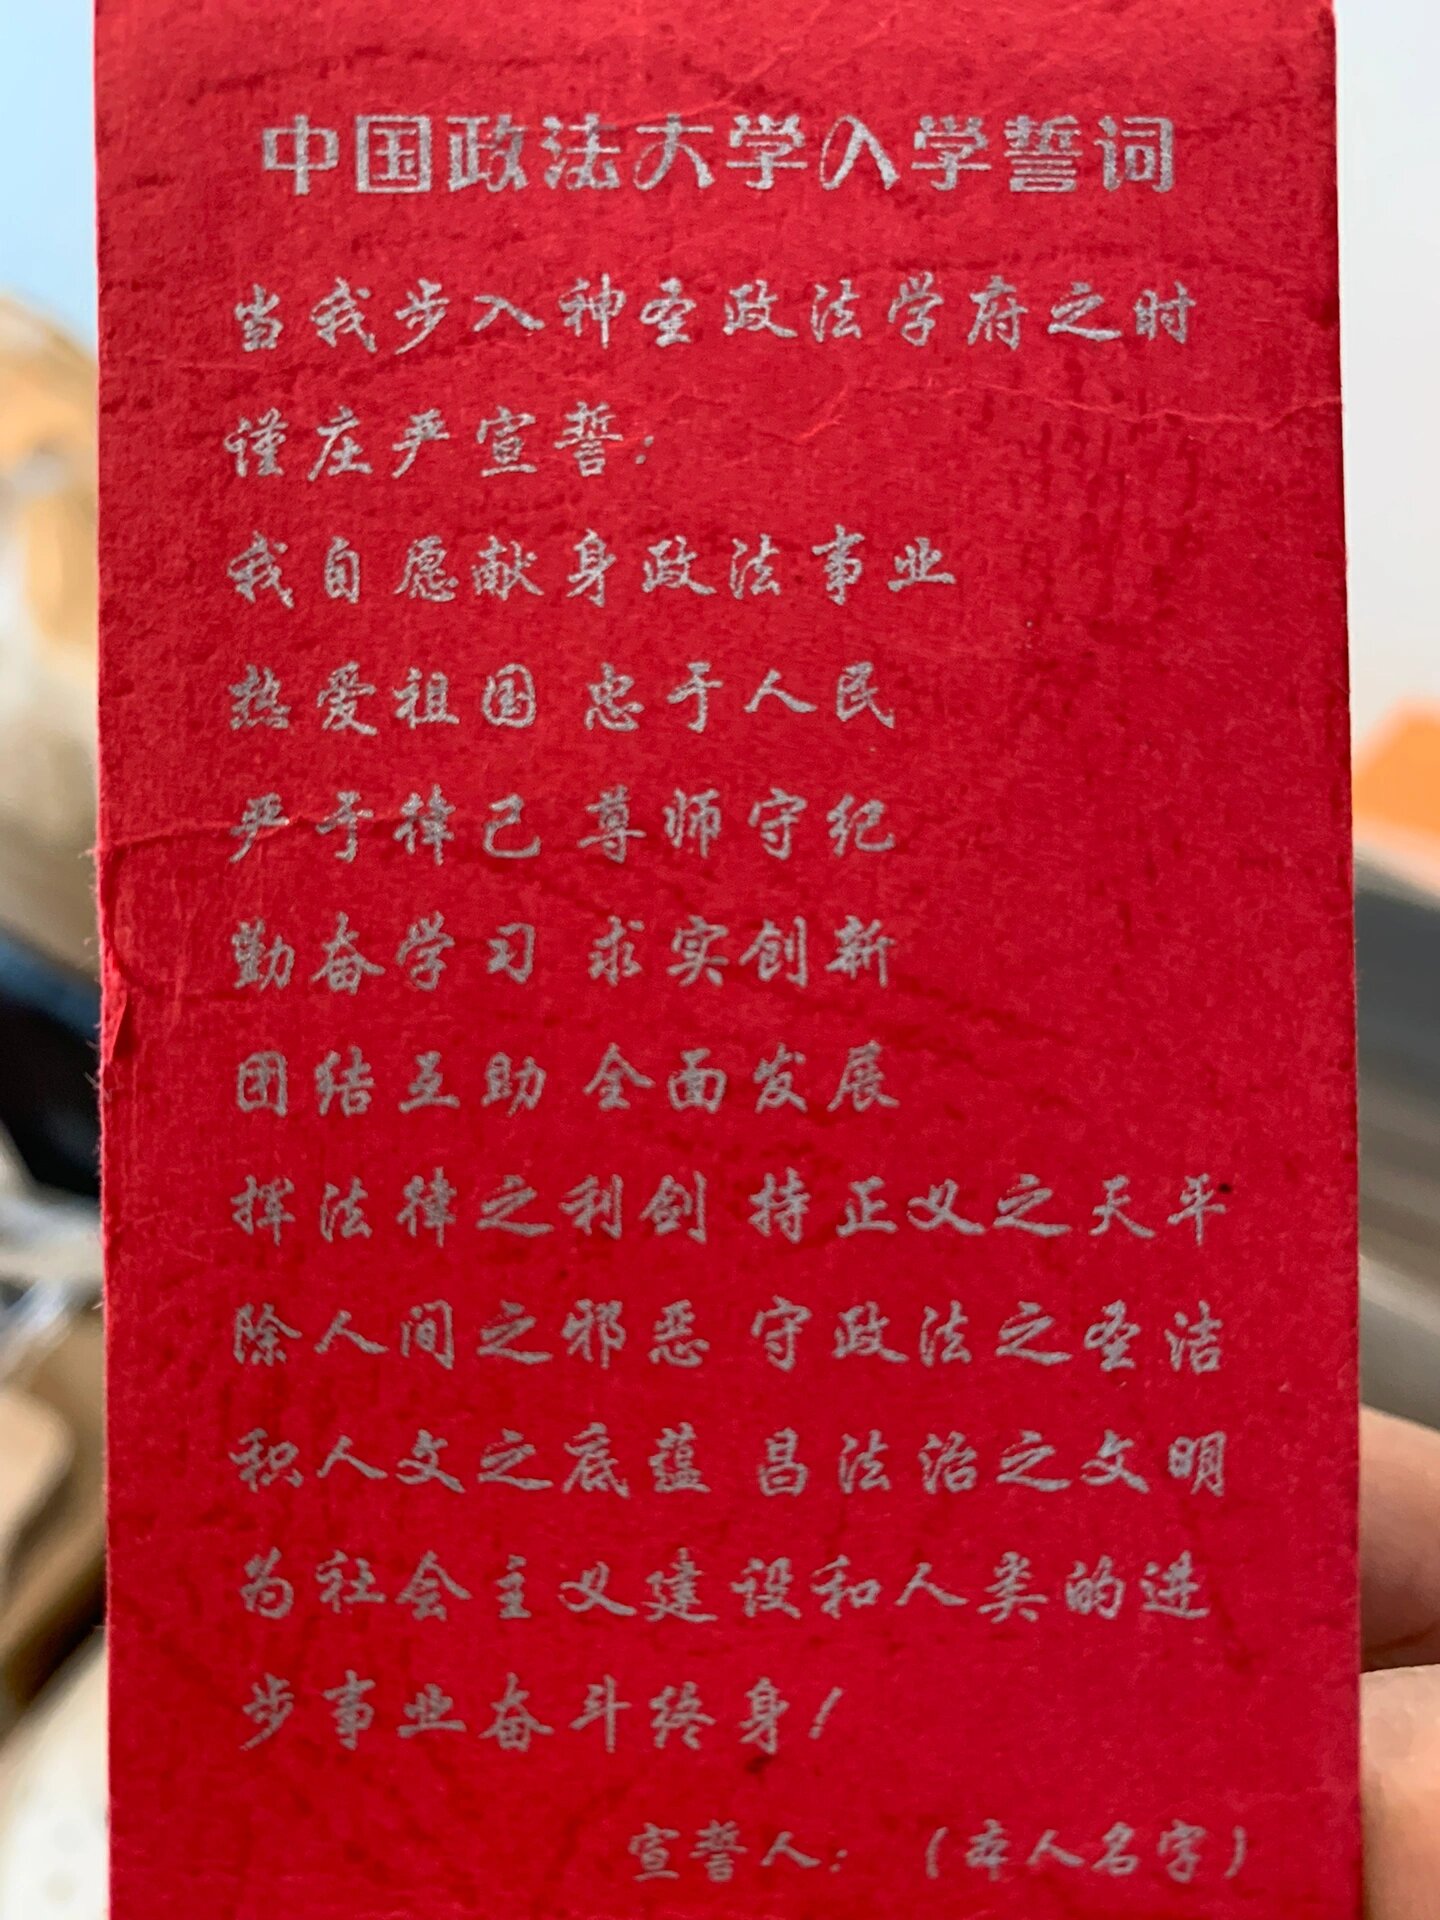 中国政法大学入学誓词
当我步入神圣政法学府之时
谨庄严宣誓:
我自愿献身政法事业
热爱祖国 忠于人民
严于律己 尊师守纪
勤奋学习 求实创新
团结互助 全面发展
挥法律之利剑 持正义之天平
除人间之邪恶 守政法之圣洁
积人文之底蕴 昌法治之文明
为社会主义建设和人类的进
步事业奋斗终身!
宣誓人: (本人名字)